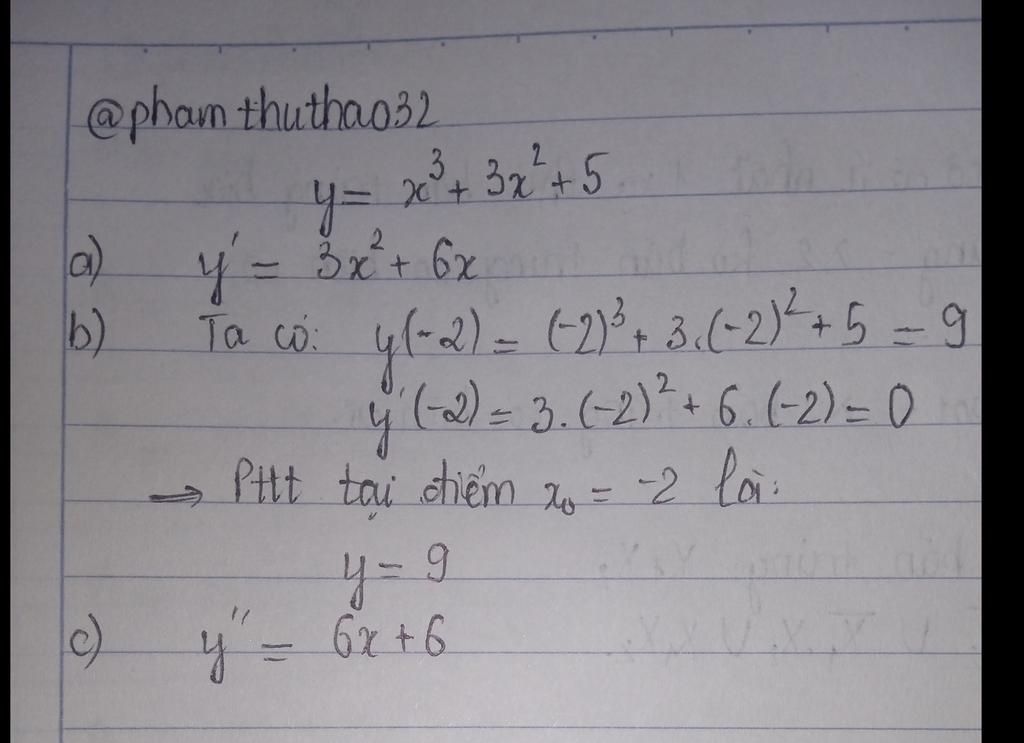 @phamthuthao32
y = x³ + 3x² + 5
a) y' = 3x² + 6x
b) Ta có: y(-2) = (-2)³ + 3.(-2)² + 5 = 9
y'(-2) = 3.(-2)² + 6.(-2) = 0
→ Pttt tại điểm x₀ = -2 là:
y = 9
c) y'' = 6x + 6